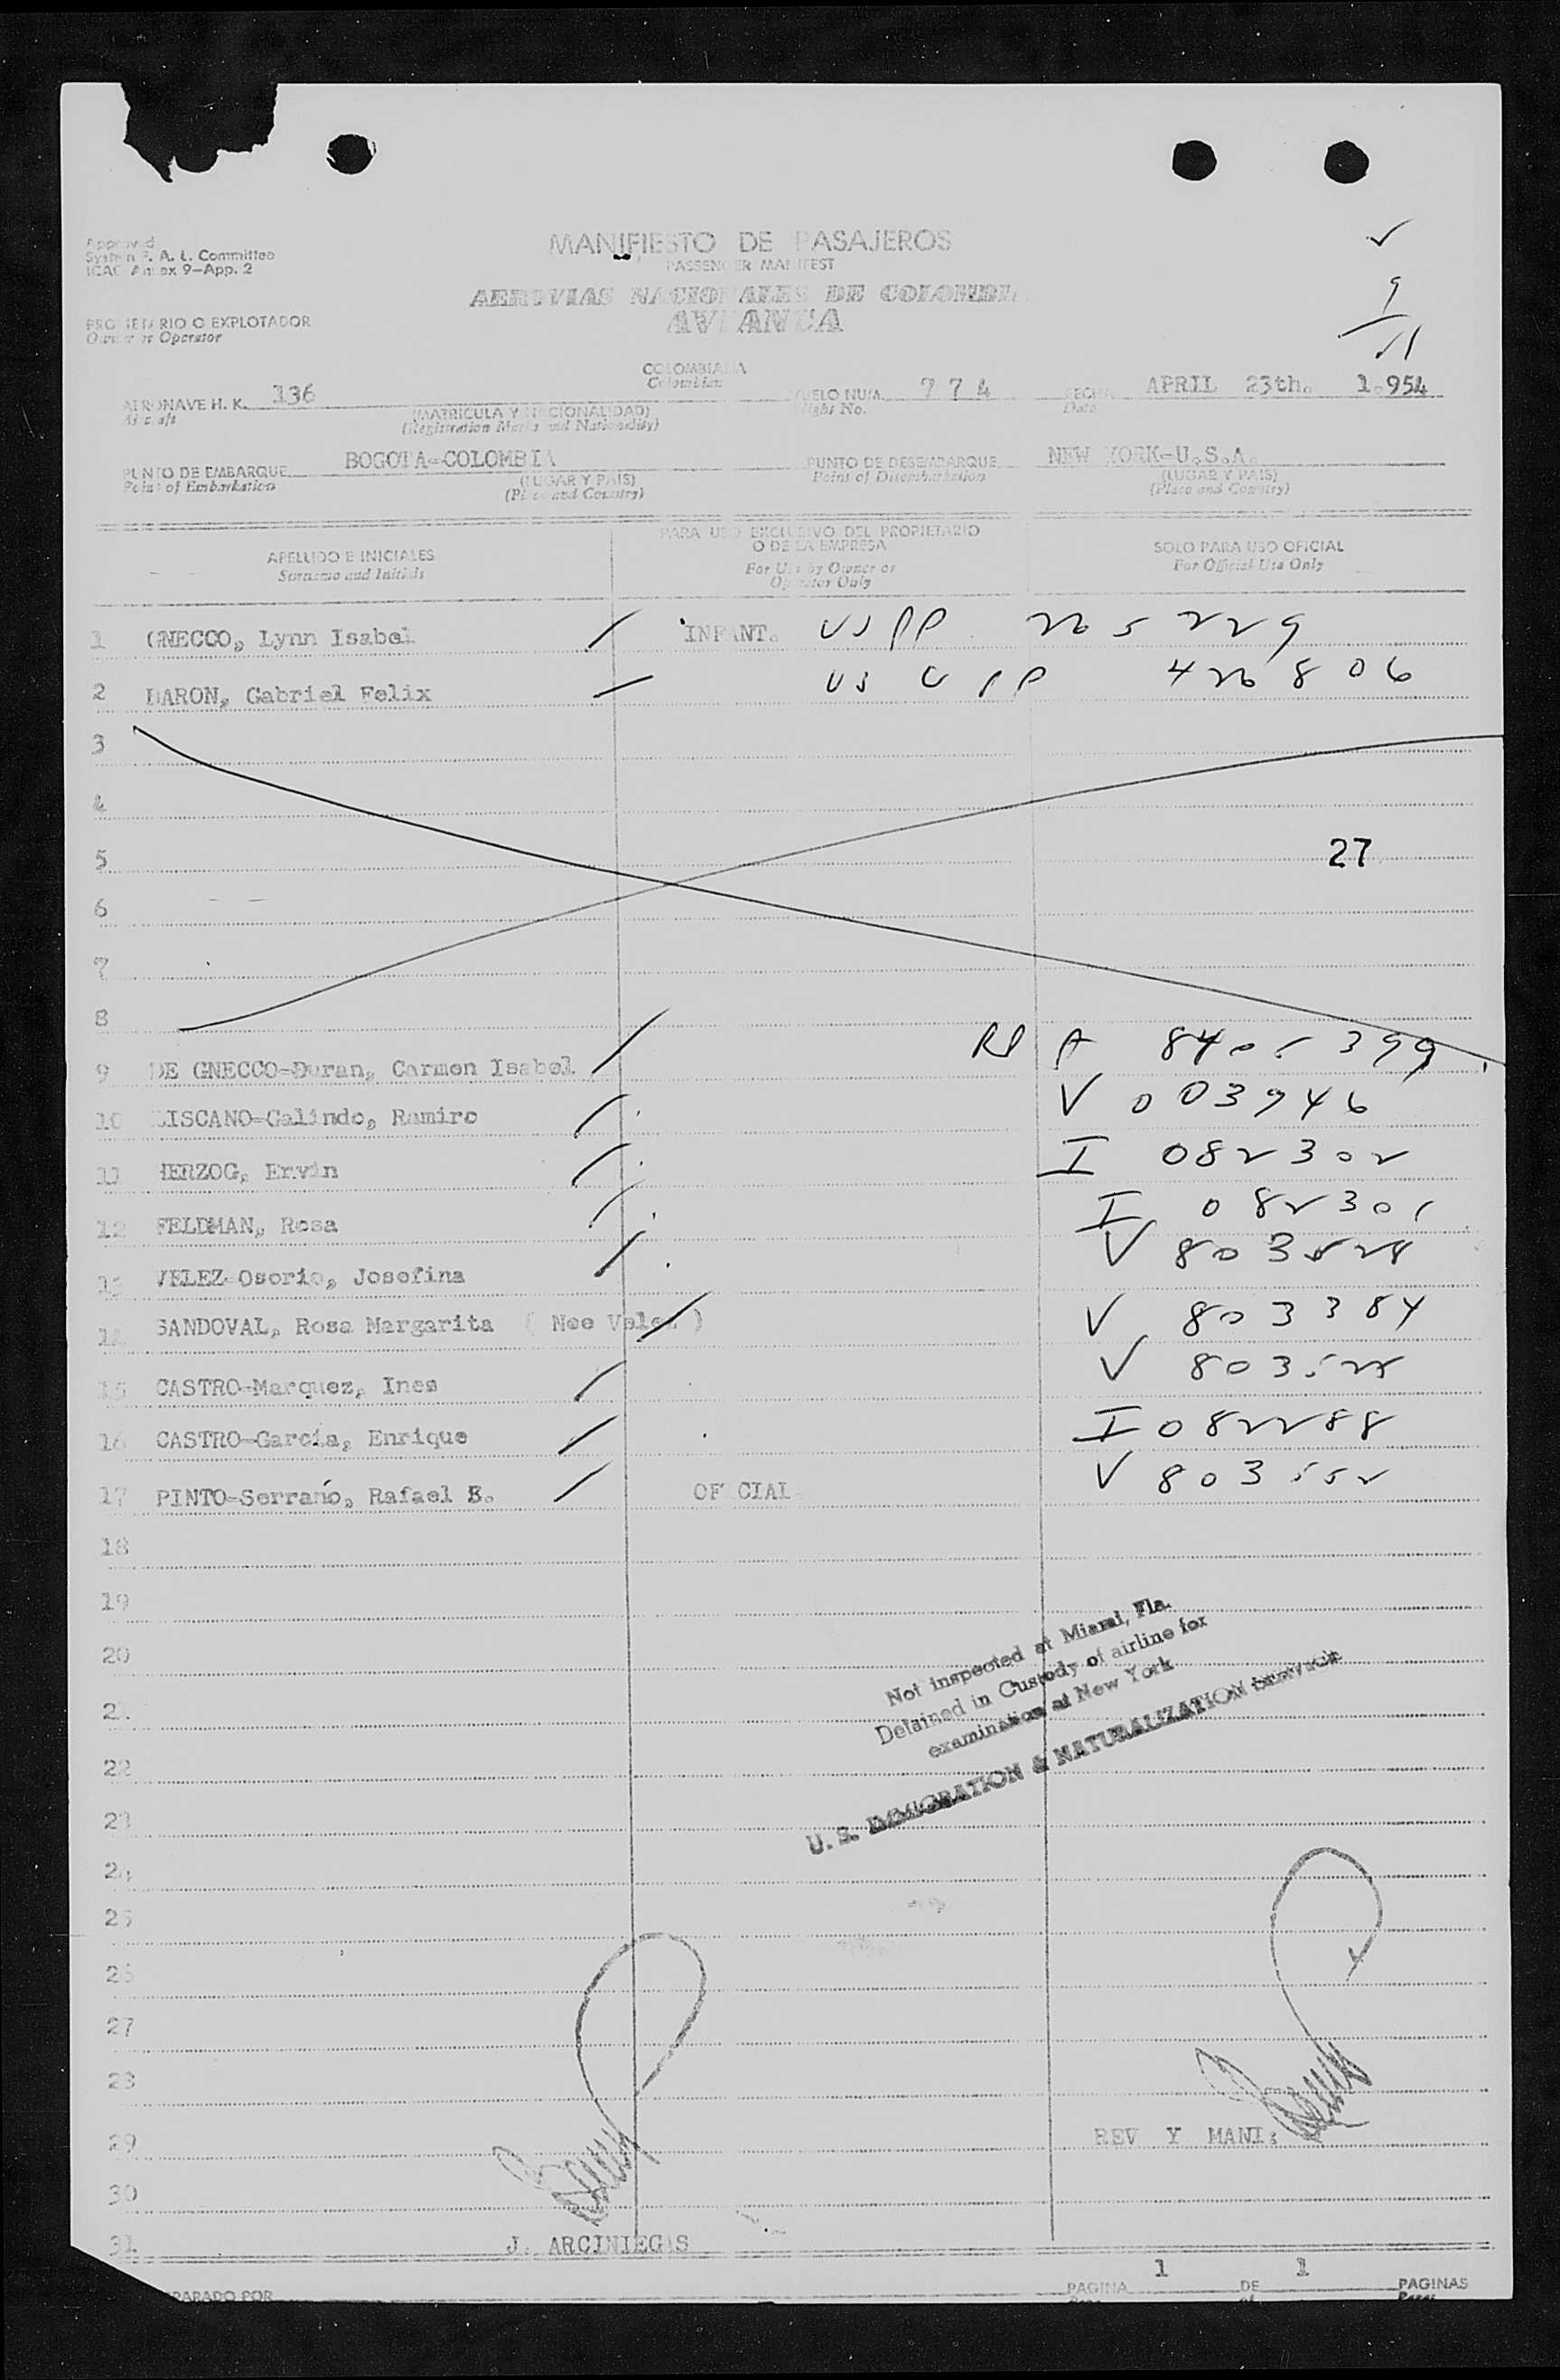 Approved
System F. A. L. Committee
ICAO Annex 9-App. 2
MANIFIESTO DE PASAJEROS
PASSENGER MANIFEST
AEROVIAS NACIONALES DE COLOMBIA
AVIANCA
PROPIETARIO O EXPLOTADOR
Owner or Operator
9
11
COLOMBIANA
Colombian
AERONAVE H. K. 136
Aircraft
(MATRICULA Y NACIONALIDAD)
(Registration Marks and Nationality)
VUELO NUM. 7 7 4
Flight No.
FECHA APRIL 23th. 1.954
Date
PUNTO DE EMBARQUE BOGOTA-COLOMBIA
Point of Embarkation
(LUGAR Y PAIS)
(Place and Country)
PUNTO DE DESEMBARQUE NEW YORK-U.S.A.
Point of Disembarkation
(LUGAR Y PAIS)
(Place and Country)
APELLIDO E INICIALES
Surname and Initials
PARA USO EXCLUSIVO DEL PROPIETARIO
O DE LA EMPRESA
For Use by Owner or
Operator Only
SOLO PARA USO OFICIAL
For Official Use Only
1 GNECCO, Lynn Isabel INFANT. US PP 265229
2 BARON, Gabriel Felix US PP 426806
3
4
5 27
6
7
8
9 DE GNECCO-Duran, Carmen Isabel A 8405399
10 LISCANO-Galindo, Ramiro V 003946
11 HERZOG, Ervin I 082302
12 FELDMAN, Rosa I 082301
13 VELEZ-Osorio, Josefina V 803528
14 SANDOVAL, Rosa Margarita ( Nee Velez ) V 803384
15 CASTRO-Marquez, Ines V
16 CASTRO-Garcia, Enrique I 082288
17 PINTO-Serrano, Rafael E. OFICIAL. V 803552
18
19
20
21
22
23
24
25
26
27
28
29
30
31
Not inspected at Miami, Fla.
Detained in Custody of airline for
examination at New York
U. S. IMMIGRATION & NATURALIZATION SERVICE
REV Y MANI:
J. ARCINIEGAS
PREPARADO POR
PAGINA 1 DE 1 PAGINAS